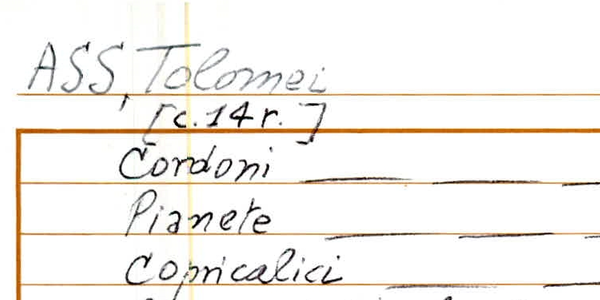 ASS, Tolomei
[c. 14 r.]
Cordoni
Pianete
Copricalici